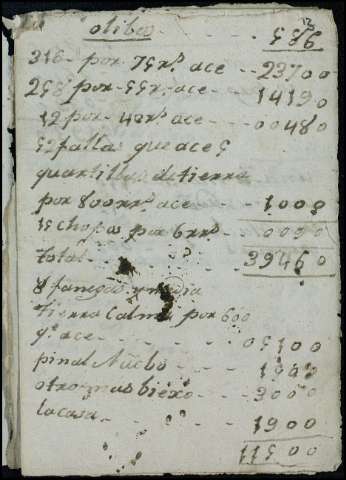 13
olibos 586
316 - por 75 rs. ace - - 23700
258 por - 55 rs. ace - - 14190
12 por - 40 rs. ace - - 00480
52 fallas que ace 5
quartillas de tierra
por 800 rrs. ace - - 1000
15 chopos por 6 rrs - - 0090
total - - 39460
8 fanegas y media
tierra Calma por 600
qe. ace - - 05100
pinal Nuebo - -
otro mas biexo - - 3000
la casa - - 1900
11500